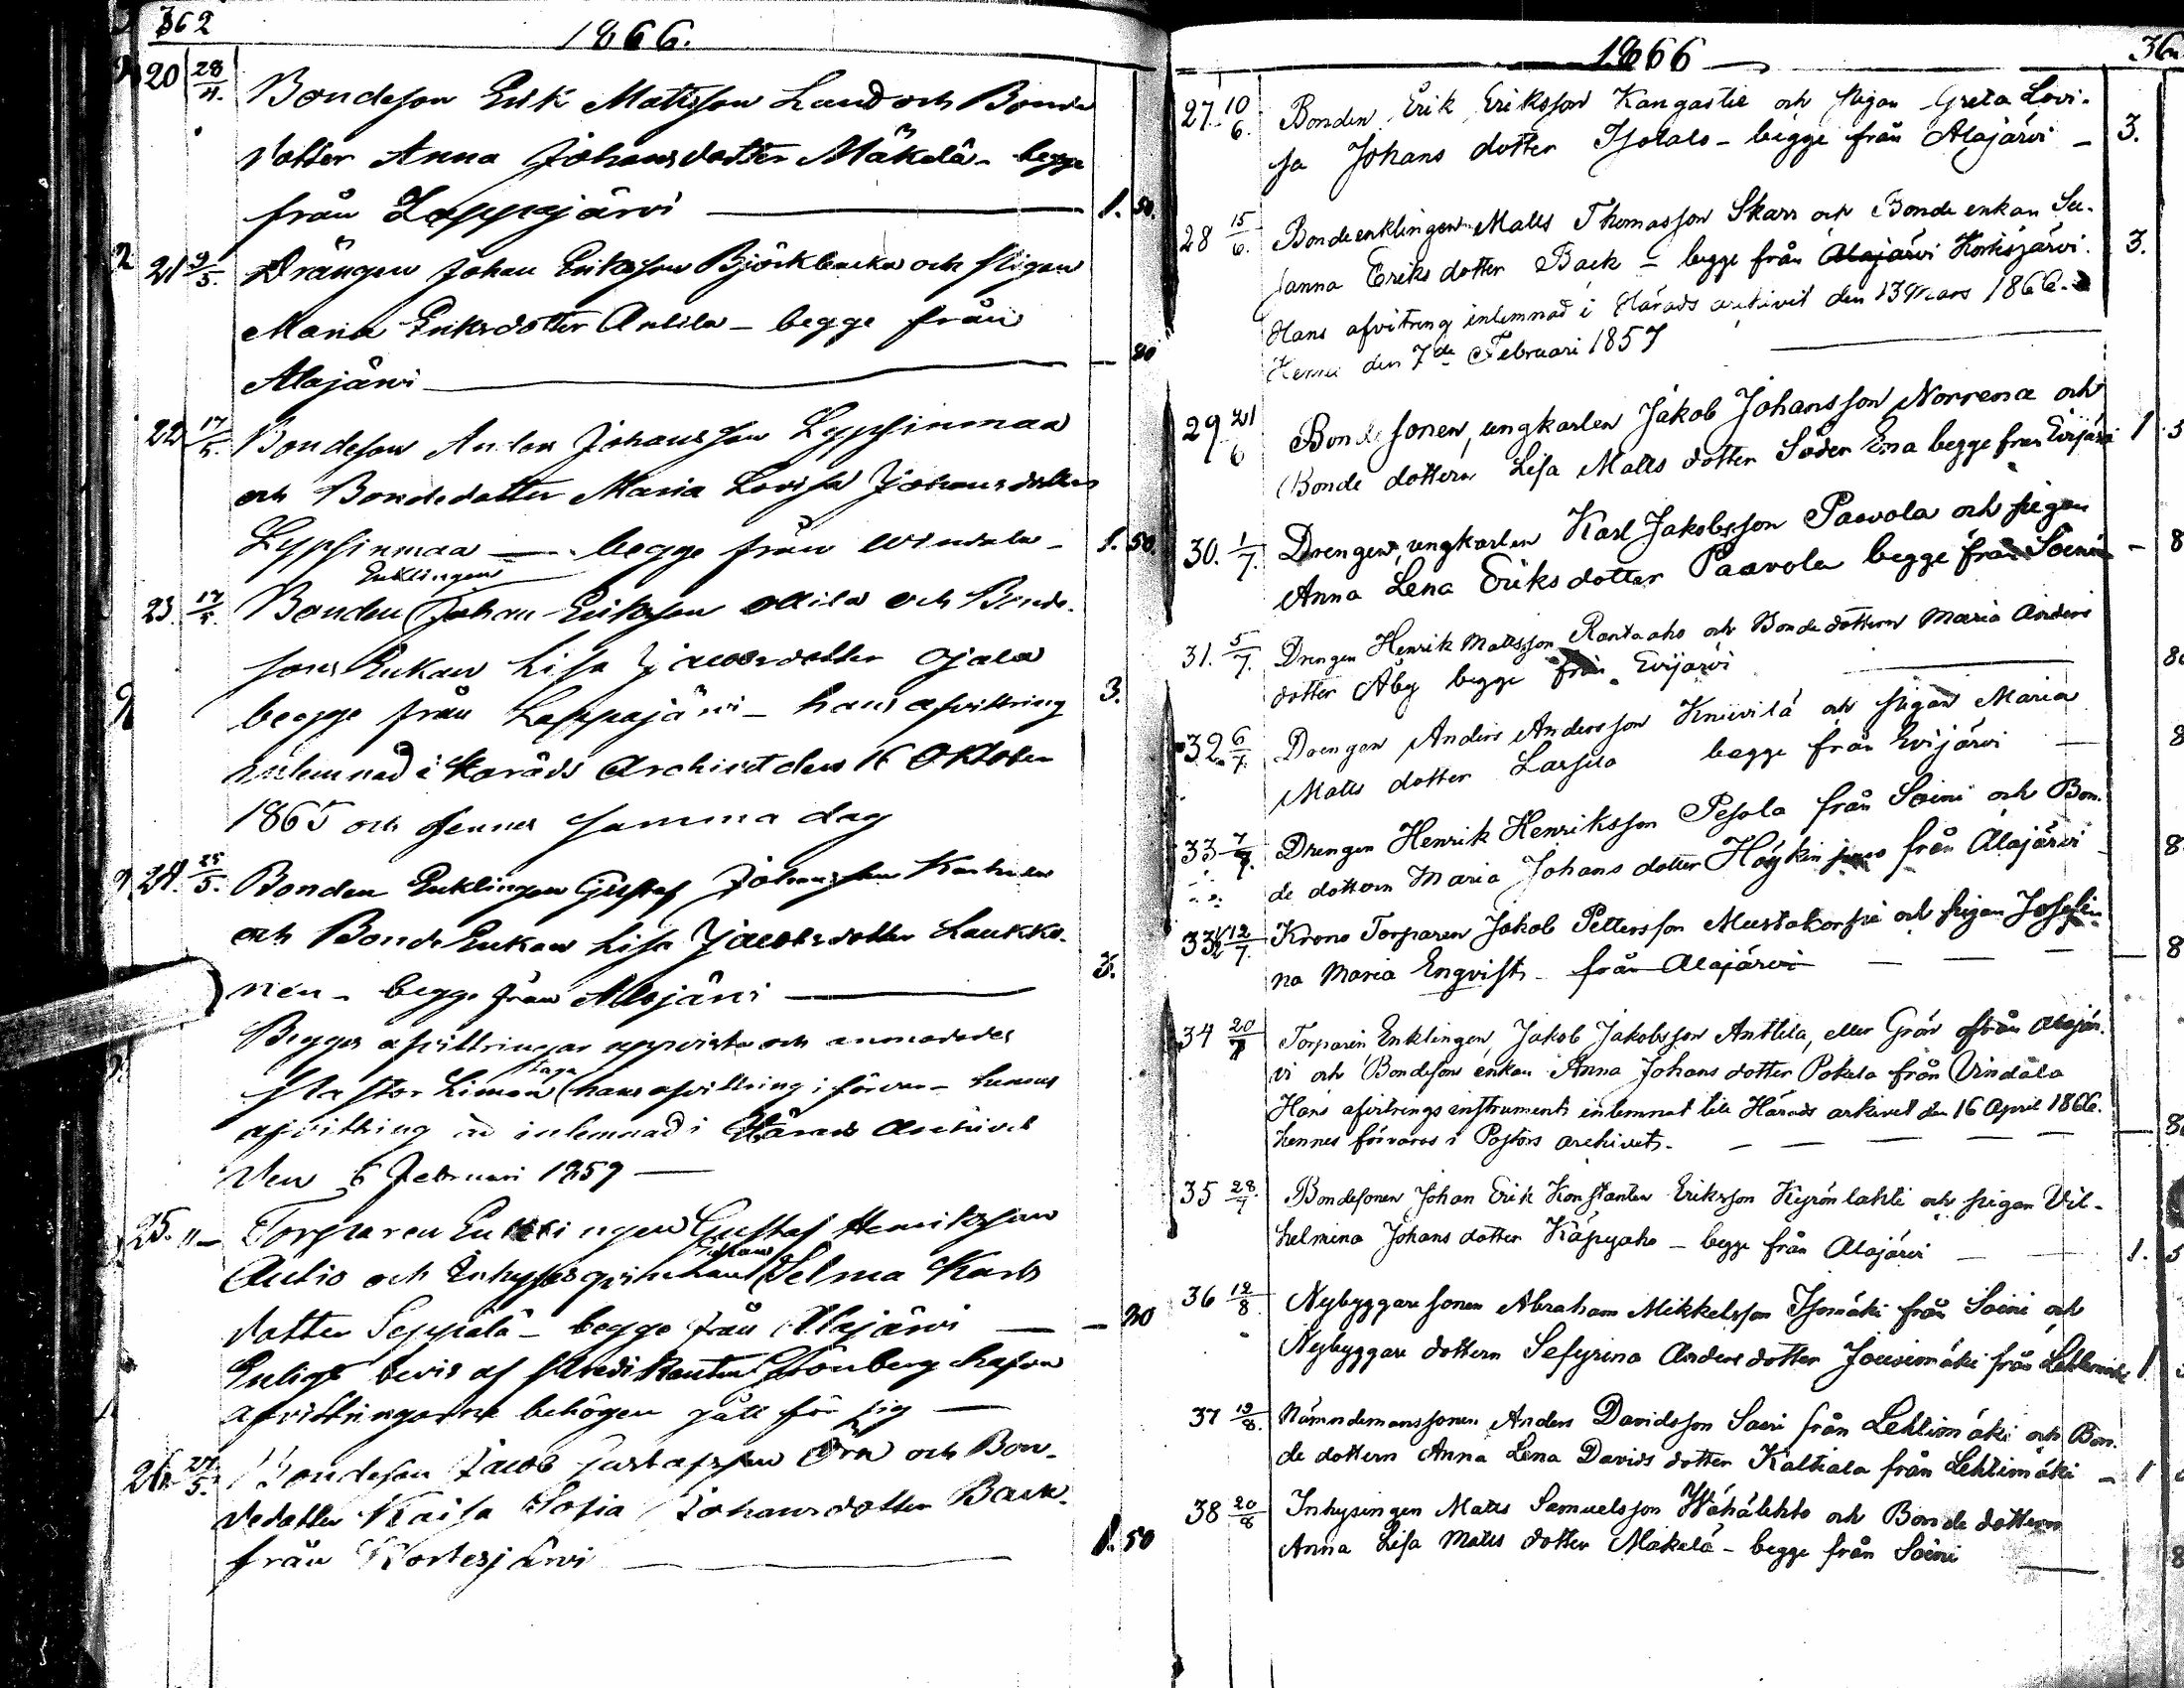 362
1866.
20 28/4. Bondeson Erik Mattsson Lund och Bonde
dotter Anna Johansdotter Mäkelä - begge
från Lappajärvi — 1. 50.
21 9/5. Drängen Johan Eriksson Björkbacka och pigan
Maria Eriksdotter Antila - begge från
Alajärvi — 80
22 17/5. Bondeson Anders Johansson Lypsinmaa
och Bondedotter Maria Lovisa Johansdotter
Lypsinmaa — begge från Windala - 1. 50.
Enklingen
23. 17/5. Bonden Johan Eriksson och Bonde-
sons Enkan Lisa Jacobsdotter Ojala
begge från Lappajärvi - hans afvittring 3.
inlemnad i Härads Archivet den 16 Oktober
1865 och hennes samma dag
24. 25/5. Bonden Enklingen Gustaf Johansson
och Bonde Enkan Lisa Jacobsdotter Laukko-
nen - begge från Alajärvi — 3.
Begges afvittringar uppvista och
hans afvittring i förvar - hennes
afvittring är inlemnad i Härads Archivet
den 6 Februari 1859 —
25. "- Torparen Enklingen Gustaf Henriksson
Autio och Inhyses Selma Karls
dotter Seppälä - begge från Alajärvi — 80
Enligt bevis af Predikanten Grönberg hafva
afvittringarne behögen gått för sig —
26. 27/5. Bondeson Jacob Gustafsson Öra och Bon-
dedotter Kaisa Sofia Johansdotter Back-
från Kortesjärvi — 1. 50
1866
27. 10/6. Bonden Erik Eriksson Kangastie och pigan Greta Lovi-
sa Johans dotter Isotalo - begge från Alajärvi - 3.
28 15/6. Bondeenklingen Matts Thomasson Skarr och Bonde enkan Su-
sanna Eriks dotter Back - begge från Alajärvi Kortisjärvi. 3.
Hans afvitring inlemnad i Härads arkivet den 13 Mars 1866.
Hennes den 7de Februari 1857 —
29 21/6 Bondesonen, ungkarlen Jakob Johansson Norrena och
Bonde dottern Lisa Matts dotter Söder Ena begge från Evijärvi 1 5
30. 1/7. Drengen, ungkarlen Karl Jakobsson Paavola och pigan
Anna Lena Eriks dotter Paavola begge från Soini - 8
31. 5/7. Drengen Henrik Mattsson Rantaaho och Bonde dottern Maria Anders
dotter Åby begge från Evijärvi 80
32. 6/7. Drengen Anders Andersson Kniivilä och pigan Maria
Matts dotter Lassila begge från Evijärvi — 8
33 7/7. Drengen Henrik Henriksson Pesola från Soini och Bon-
de dottern Maria Johans dotter Höykin från Alajärvi - 8
33½ 12/7. Krono Torparen Jakob Pettersson Mustakorpi och pigan Josefi-
na Maria Enqvist - från Alajärvi — 8
34 20/7 Torparen Enklingen, Jakob Jakobsson Anttila, eller Grör från Alajär-
vi och Bondeson enkan Anna Johans dotter Pokela från Vindala
Hans afvitrings instruments inlemnat till Härads arkivet den 16 April 1866.
hennes förvaras i Pastors archivet. — 8
35 28/7 Bondesonen Johan Erik Konstantin Eriksson Kyrönlahti och pigan Vil-
helmina Johans dotter Käpyaho - begge från Alajärvi — 1. 5
36 12/8. Nybyggare sonen Abraham Mikkelsson Isomäki från Soini och
Nybyggare dottern Sefyrina Anders dotter Jousimäki från Lehtimäki 1
37 19/8. Nämndemanssonen Anders Davidsson Saari från Lehtimäki och Bon-
de dottern Anna Lena Davids dotter Kaltiala från Lehtimäki - 1
38 20/8 Inhysingen Matts Samuelsson Wähälehto och Bonde dottern
Anna Lisa Matts dotter Mäkelä - begge från Soini — 8